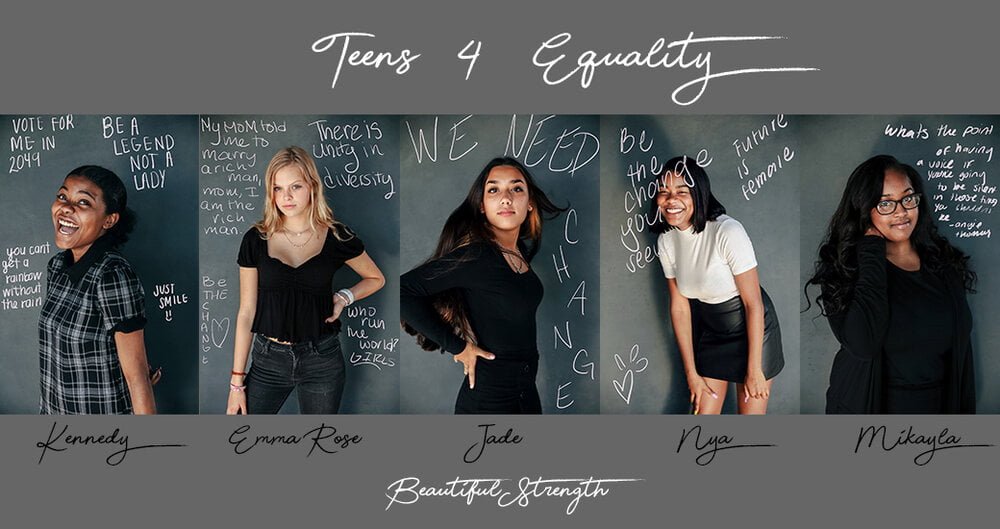 Teens 4 Equality
VOTE FOR
ME IN
2049
BE A
LEGEND
NOT A
LADY
you cant
get a
rainbow
without
the rain
JUST
SMILE
My MOM told
me to
marry
a rich
man,
mom, I
am the
rich
man.
There is
unity in
diversity
Be
THE
C
H
A
N
G
E
who
run
the
world?
GIRLS
WE NEED
C
H
A
N
G
E
Be
the
change
you
Future
is
female
Whats the point
of having
a voice if
you're going
to be silent
in those
you shouldn't
be
-angie
thomas
Kennedy
Emma Rose
Jade
Nya
Mikayla
Beautiful Strength